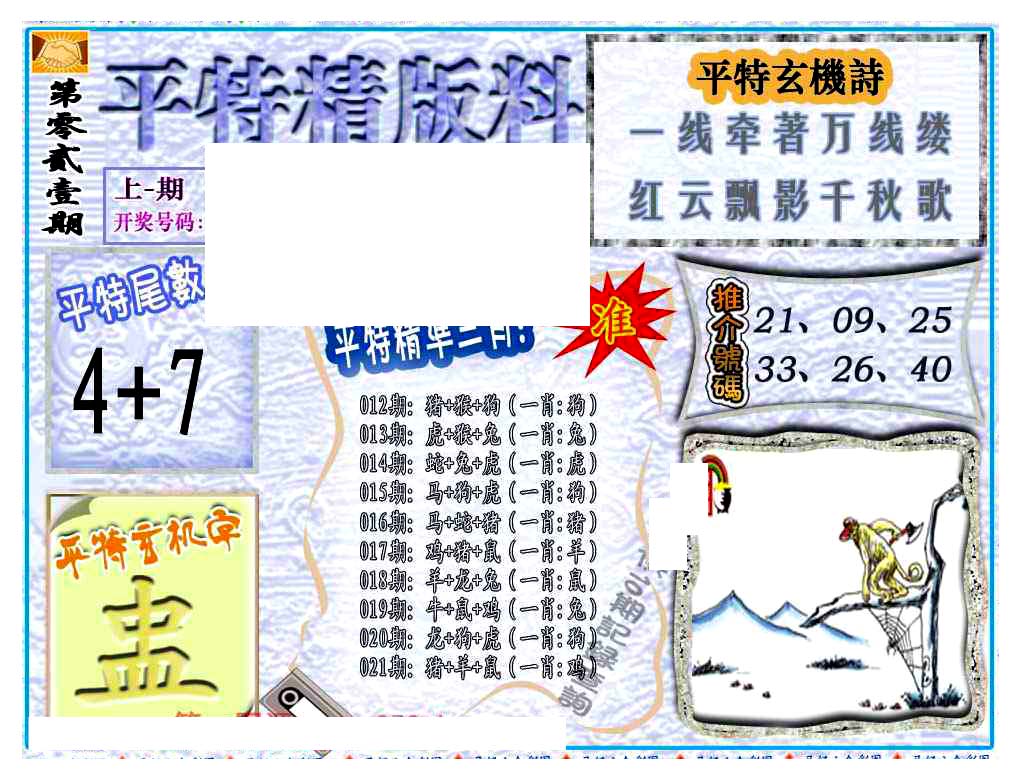 第零贰壹期
平特精版料
上-期
开奖号码:
平特玄機詩
一线牵著万线缕
红云飘影千秋歌
平特尾數
4+7
平特精準二肖:
准
012期: 猪+猴+狗（一肖:狗）
013期: 虎+猴+兔（一肖:兔）
014期: 蛇+兔+虎（一肖:虎）
015期: 马+狗+虎（一肖:狗）
016期: 马+蛇+猪（一肖:猪）
017期: 鸡+猪+鼠（一肖:羊）
018期: 羊+龙+兔（一肖:鼠）
019期: 牛+鼠+鸡（一肖:兔）
020期: 龙+狗+虎（一肖:狗）
021期: 猪+羊+鼠（一肖:鸡）
期記録查詢
推介號碼
21、09、25
33、26、40
平特玄机字
蛊